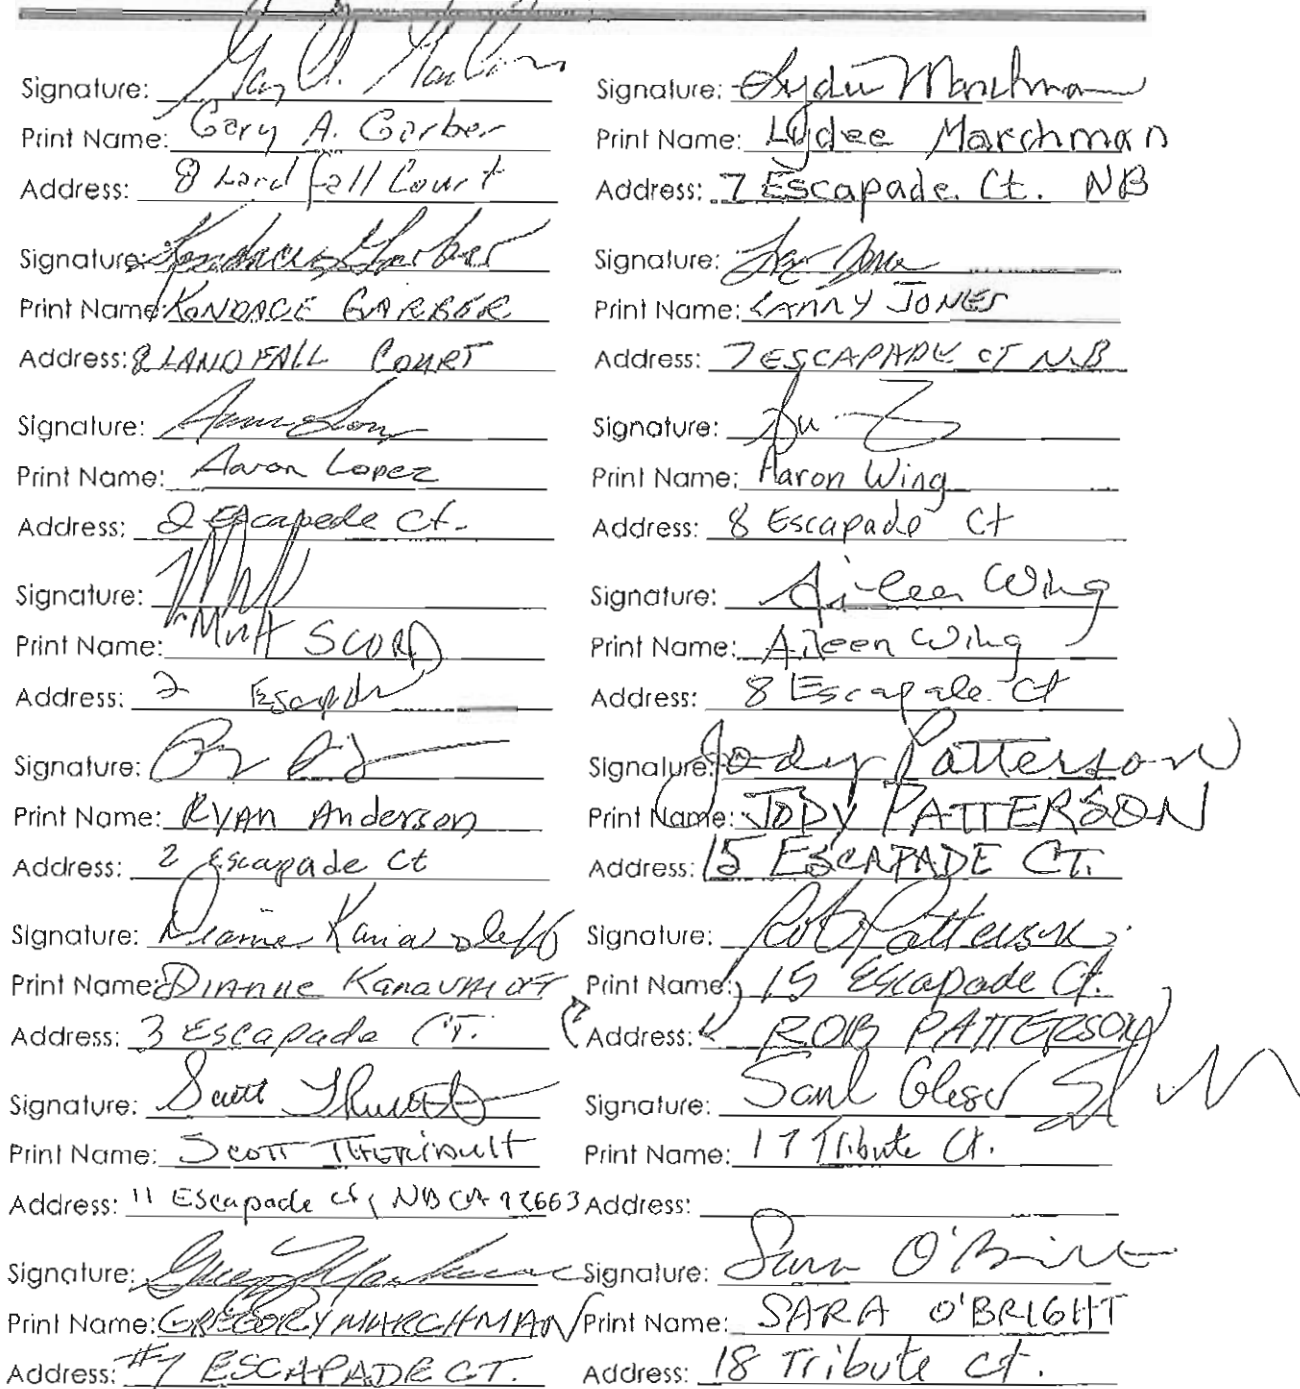 Signature: Gary A. Garber
Print Name: Gary A. Garber
Address: 8 Landfall Court
Signature: Kondace Garber
Print Name: KONDACE GARBER
Address: 8 LANDFALL COURT
Signature:
Print Name: Aaron Lopez
Address: 2 Escapede Ct.
Signature:
Print Name: Matt
Address: 2
Signature:
Print Name: Ryan Anderson
Address: 2 Escapade Ct
Signature: Dianne
Print Name: Dianne
Address: 3 Escapade CT.
Signature: Scott
Print Name: Scott Theriault
Address: 11 Escapade ct, NB CA 92663
Signature:
Print Name: GREGORY MARCHMAN
Address: #7 ESCAPADE CT.
Signature: Lydee Marchman
Print Name: Lydee Marchman
Address: 7 Escapade Ct. NB
Signature:
Print Name: LARRY JONES
Address: 7 ESCAPADE CT N.B
Signature:
Print Name: Aaron Wing
Address: 8 Escapade Ct
Signature: Aileen Wing
Print Name: Aileen Wing
Address: 8 Escapade Ct
Signature: Jody Patterson
Print Name: JODY PATTERSON
Address: 15 ESCAPADE CT.
Signature: Rob Patterson
Print Name: 15 Escapade Ct.
Address: ROB PATTERSON
Signature:
Print Name: 17 Tribute Ct.
Address:
Signature: Sara O'Bright
Print Name: SARA O'BRIGHT
Address: 18 Tribute Ct.